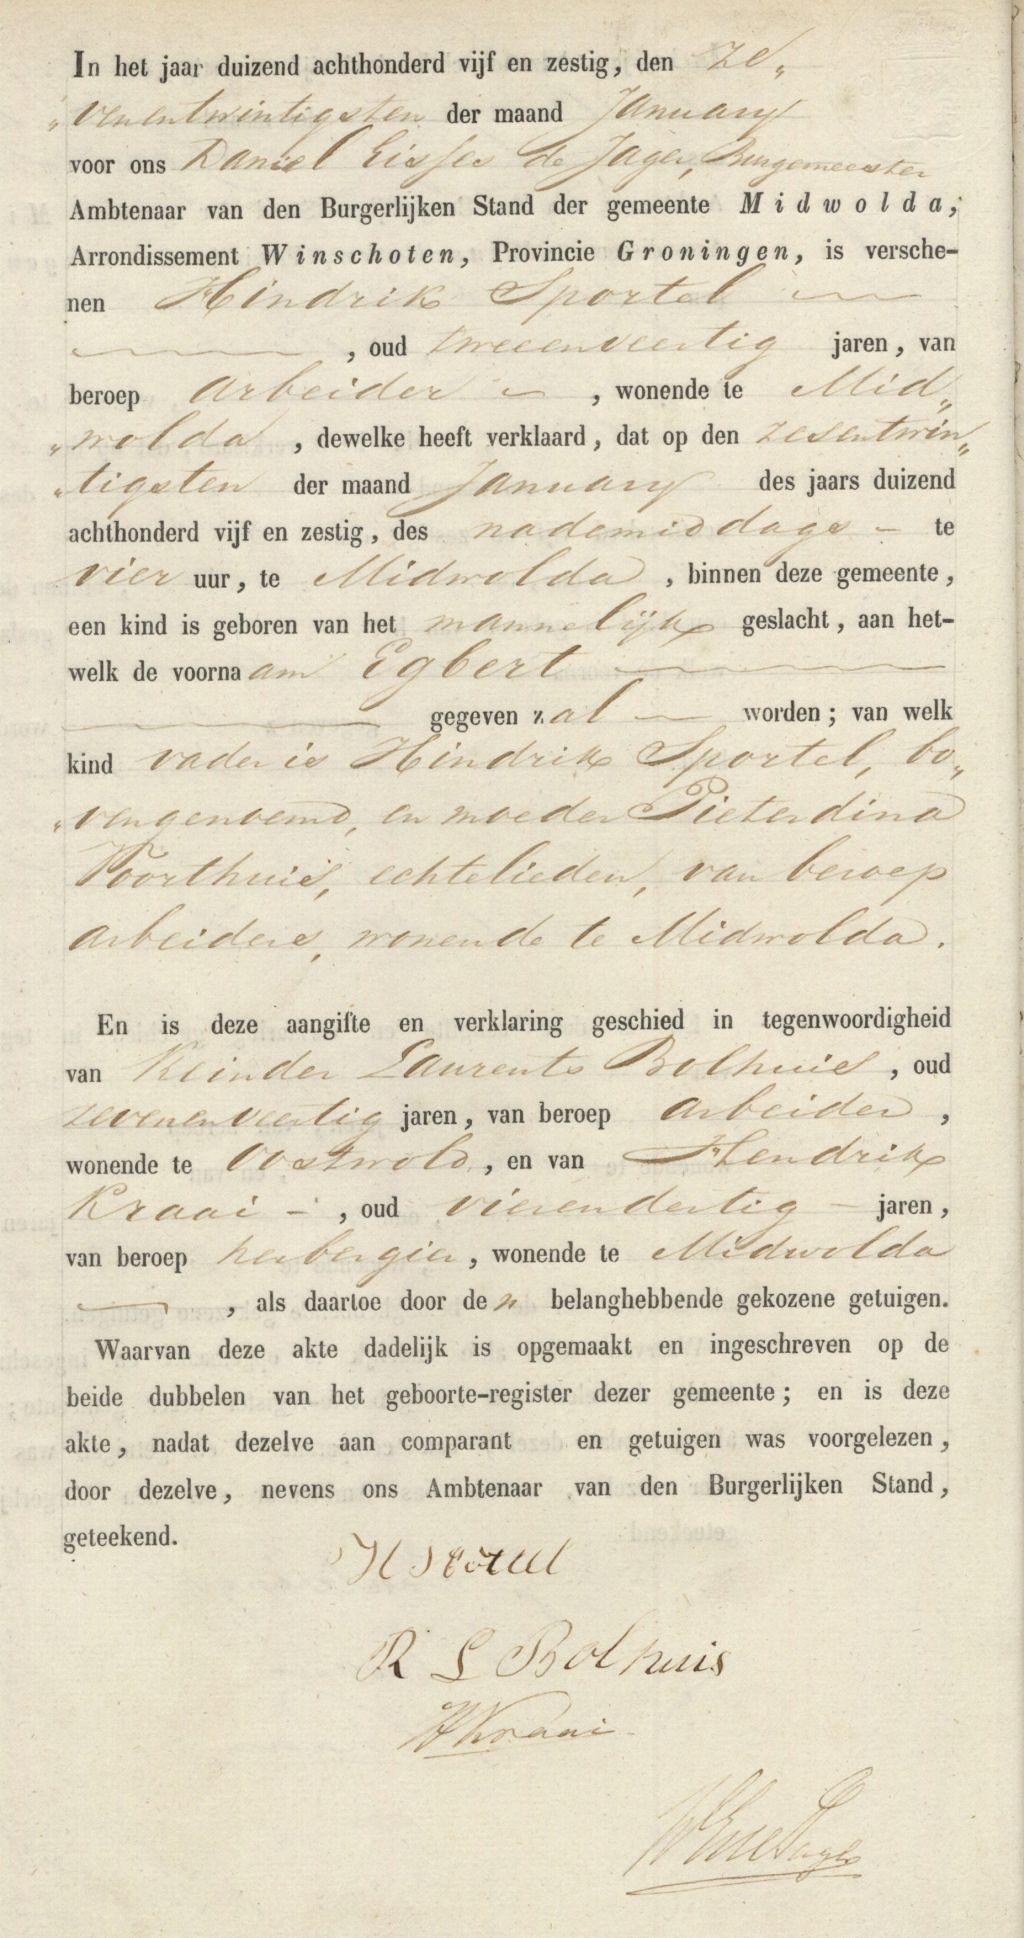 In het jaar duizend achthonderd vijf en zestig, den ze„
„venentwintigsten der maand January
voor ons Daniel Eisses de Jager, Burgemeester
Ambtenaar van den Burgerlijken Stand der gemeente Midwolda,
Arrondissement Winschoten, Provincie Groningen, is versche-
nen Hindrik Sportel
, oud tweeenveertig jaren, van
beroep arbeider, wonende te Mid„
„wolda, dewelke heeft verklaard, dat op den zesentwin„
„tigsten der maand January des jaars duizend
achthonderd vijf en zestig, des nademiddags te
vier uur, te Midwolda, binnen deze gemeente,
een kind is geboren van het mannelijk geslacht, aan het-
welk de voornaam Egbert
gegeven zal worden; van welk
kind vader is Hindrik Sportel, bo„
„vengenoemd, en moeder Pieterdina
Voorthuis, echtelieden, van beroep
arbeiders, wonende te Midwolda.
En is deze aangifte en verklaring geschied in tegenwoordigheid
van Reinder Laurents Bolhuis, oud
zevenenveertig jaren, van beroep arbeider,
wonende te Oostwold, en van Hendrik
Kraai, oud vierendertig jaren,
van beroep herbergier, wonende te Midwolda
, als daartoe door den belanghebbende gekozene getuigen.
Waarvan deze akte dadelijk is opgemaakt en ingeschreven op de
beide dubbelen van het geboorte-register dezer gemeente; en is deze
akte, nadat dezelve aan comparant en getuigen was voorgelezen,
door dezelve, nevens ons Ambtenaar van den Burgerlijken Stand,
geteekend.
H
R L Bolhuis
H Kraai